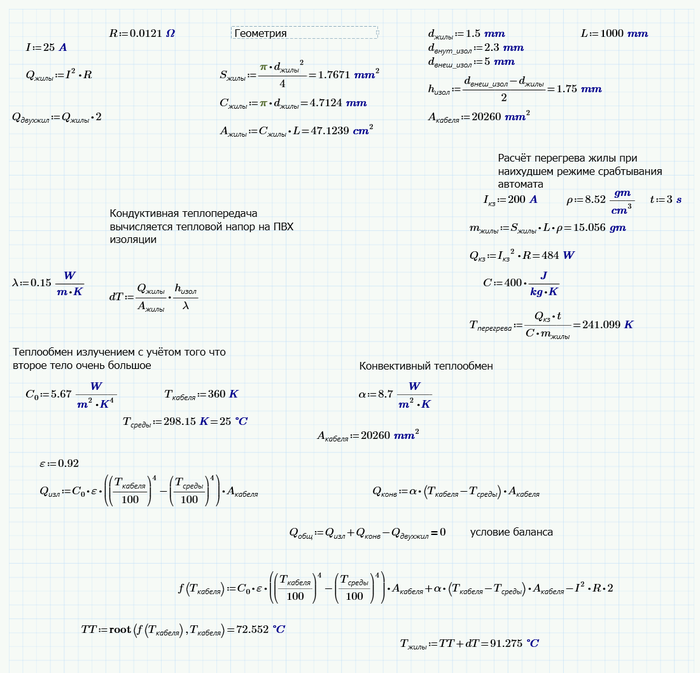 R:=0.0121 Ω
Геометрия
d_жилы:=1.5 mm
L:=1000 mm
I:=25 A
d_внут_изол:=2.3 mm
d_внеш_изол:=5 mm
Q_жилы:=I^2·R
S_жилы:=(π·d_жилы^2)/4=1.7671 mm^2
h_изол:=(d_внеш_изол−d_жилы)/2=1.75 mm
C_жилы:=π·d_жилы=4.7124 mm
Q_двухжил:=Q_жилы·2
A_кабеля:=20260 mm^2
A_жилы:=C_жилы·L=47.1239 cm^2
Расчёт перегрева жилы при
наихудшем режиме срабтывания
автомата
I_кз:=200 A
ρ:=8.52 gm/cm^3
t:=3 s
Кондуктивная теплопередача
вычисляется тепловой напор на ПВХ
изоляции
m_жилы:=S_жилы·L·ρ=15.056 gm
Q_кз:=I_кз^2·R=484 W
λ:=0.15 W/(m·K)
dT:=Q_жилы/A_жилы·h_изол/λ
C:=400·J/(kg·K)
T_перегрева:=(Q_кз·t)/(C·m_жилы)=241.099 K
Теплообмен излучением с учётом того что
второе тело очень большое
Конвективный теплообмен
C_0:=5.67 W/(m^2·K^4)
T_кабеля:=360 K
α:=8.7 W/(m^2·K)
T_среды:=298.15 K=25 °C
A_кабеля:=20260 mm^2
ε:=0.92
Q_изл:=C_0·ε·((T_кабеля/100)^4−(T_среды/100)^4)·A_кабеля
Q_конв:=α·(T_кабеля−T_среды)·A_кабеля
Q_общ:=Q_изл+Q_конв−Q_двухжил=0
условие баланса
f(T_кабеля):=C_0·ε·((T_кабеля/100)^4−(T_среды/100)^4)·A_кабеля+α·(T_кабеля−T_среды)·A_кабеля−I^2·R·2
TT:=root(f(T_кабеля),T_кабеля)=72.552 °C
T_жилы:=TT+dT=91.275 °C